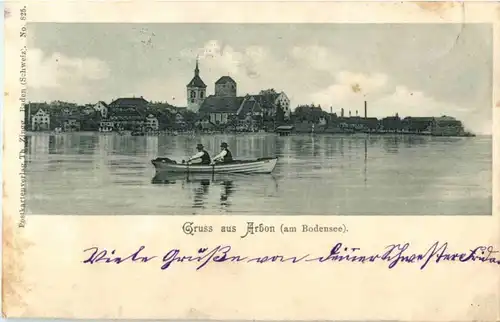 Postkartenverlag Th. Zinggr, Baden (Schweiz). No. 825.
Gruss aus Arbon (am Bodensee).
Viele Grüße von deiner Schwester Frida